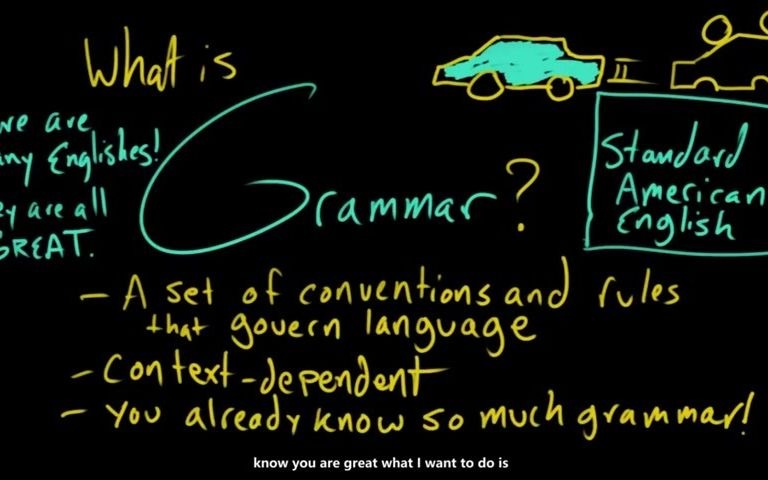 What is
Grammar?
we are
Englishes!
are all
GREAT.
Standard
American
English
- A set of conventions and rules
that govern language
- Context-dependent
- You already know so much grammar!
know you are great what I want to do is